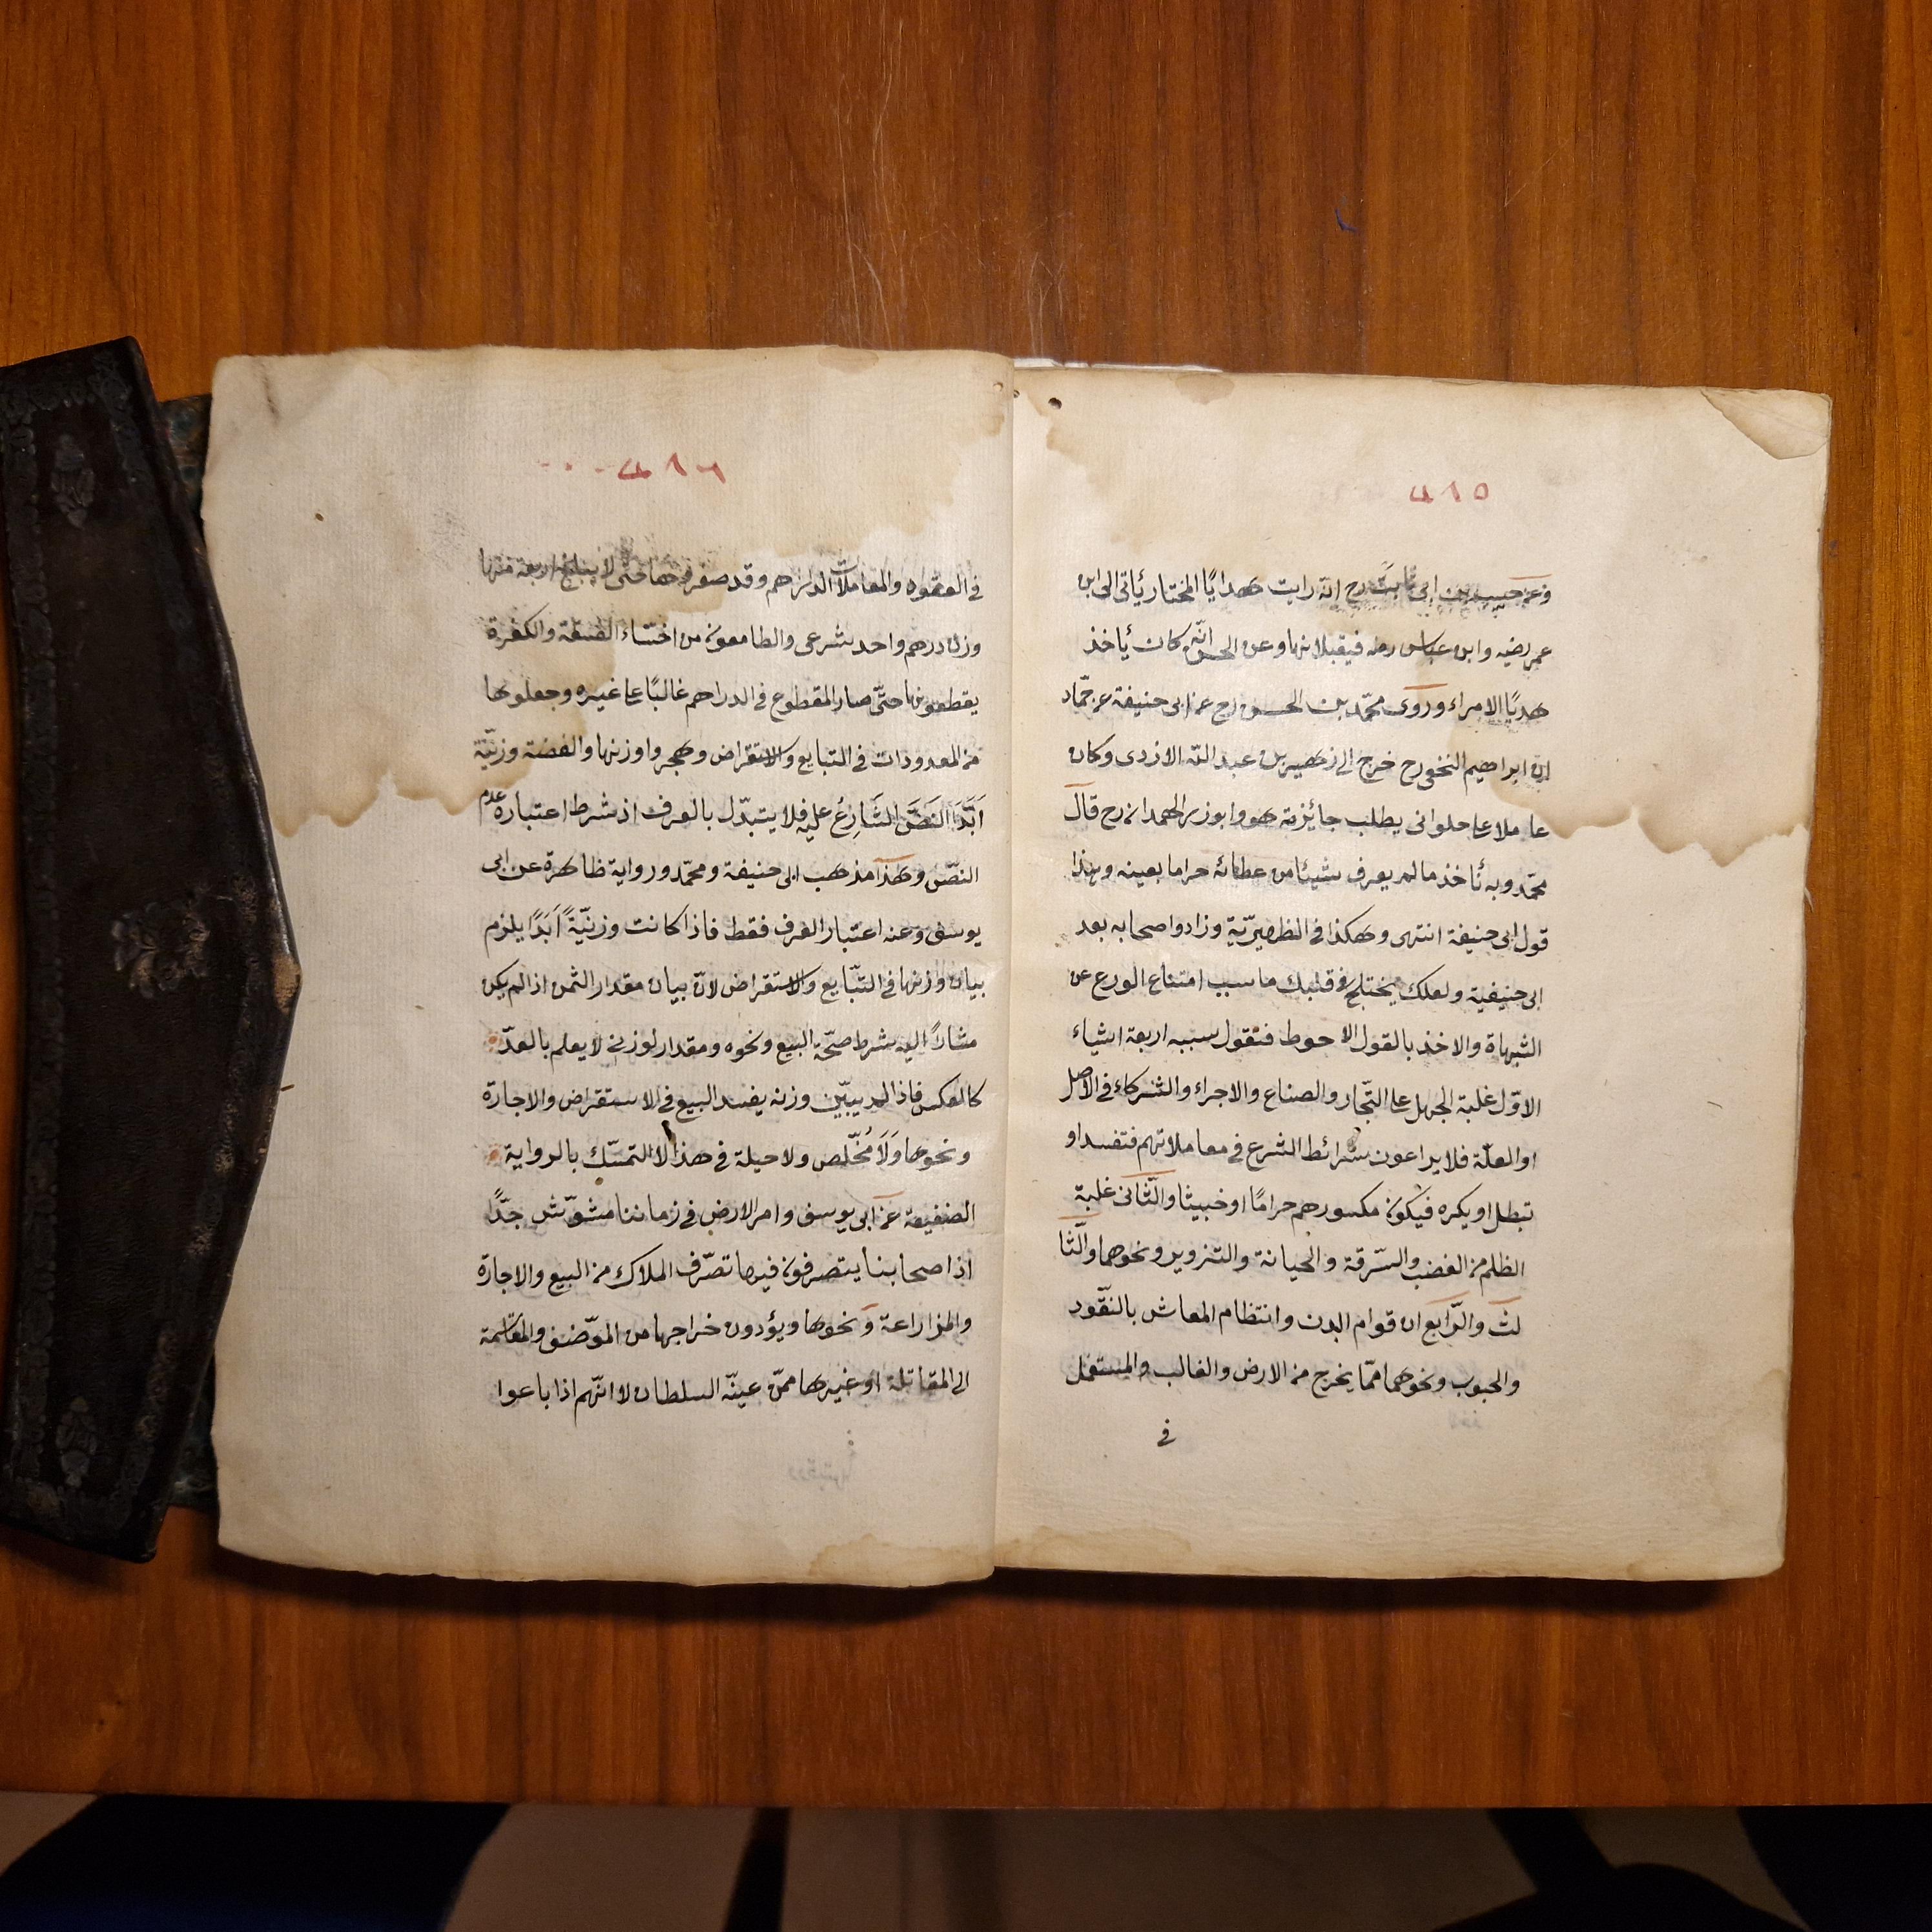 ٤١٥
وعن حبيب بن ابى ثابت رح انه رايت هدايًا المختار يأتى الى ابن
عمر رضيه وابن عباس رضه فيقبلانها وعن الحسن انّه كان يأخذ
هديًا الامراء وروى محمّد بن الحسن رح عن ابى حنيفة عن حمّاد
ان ابراهيم النخعى رح خرج الى زهير بن عبد الله الازدى وكان
عاملا على حلوانى يطلب جائزته هو وابو زر الهمدانى رح قال
محمّد وبه نأخذ ما لم يعرف شيئا من عطائه حراما بعينه وهذا
قول ابى حنيفة انتهى وهكذا فى الظهيريّة وزادوا صحابه بعد
ابى حنيفية ولعلك يختلج فى قلبك ما سبب امتناع الورع عن
الشبهاة والاخذ بالقول الاحوط فنقول سببه اربعة اشياء
الاوّل غلبة الجهل على التّجار والصناع والاجراء والشركاء فى الاصل
او الغلّة فلا يراعون شرائط الشرع فى معاملاتهم فتفسد او
تبطل او يكره فيكون مكسورهم حرامًا او خبيثا والثّانى غلبة
الظلم من الغضب والسّرقة والخيانة والتزوير ونحوهما والثّا
لث والرّابع ان قوام البدن وانتظام المعاش بالنّقود
والحبوب ونحوهما ممّا يخرج من الارض والغالب والمستعمل
فى
٤١٦
فى العقود والمعاملات الدراهم وقد صغروها حتى لا يبلغ اربعة منها
وزن درهم واحد شرعى والطامعون من اخسّاء الفسقة والكفرة
يقطعونها حتّى صار المقطوع فى الدراهم غالبًا على غيره وجعلوها
من المعدودات فى التبايع والاستقراض وهجروا وزنها والفضة وزنيّة
اَبَدًا النَصَّ الشَّارِعُ عليه فلا يتبدّل بالعرف اذ شرط اعتباره عدم
النصّ وهذا مذهب ابى حنيفة ومحمّد ورواية ظاهرة عن ابى
يوسف وعنه اعتبار العرف فقط فاذا كانت وزنيّةً اَبَدًا يلزم
بيان وزنها فى التّبايع والاستقراض لانّ بيان مقدار الثمن اذا لم يكن
مشارًا اليه شرط صحّة البيع ونحوه ومقدار لوزنى لا يعلم بالعدّ
كالعكس فاذا لم يبيّن وزنه يفسد البيع فى الاستقراض والاجارة
ونحوها وَلَا مُخّلص ولا حيلة فى هذا الا التمسّك بالرواية
الضعيفة عن ابى يوسف وامر الارض فى زماننا مشوّش جدًّا
اذا صحابنا يتصرفون فيها تصرّف الملاك من البيع والاجارة
والمزاراعة ونحوها ويؤدون خراجها من الموّضف والمقاسمة
الى المقاتلة او غيرها ممّن عينّه السلطان لا انّهم اذا باعوا